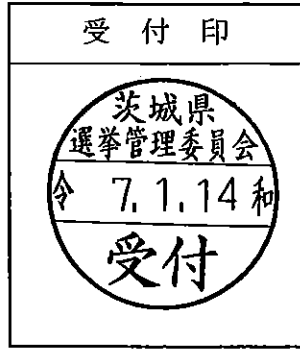 受付印
茨城県
選挙管理委員会
令 7.1.14 和
受付